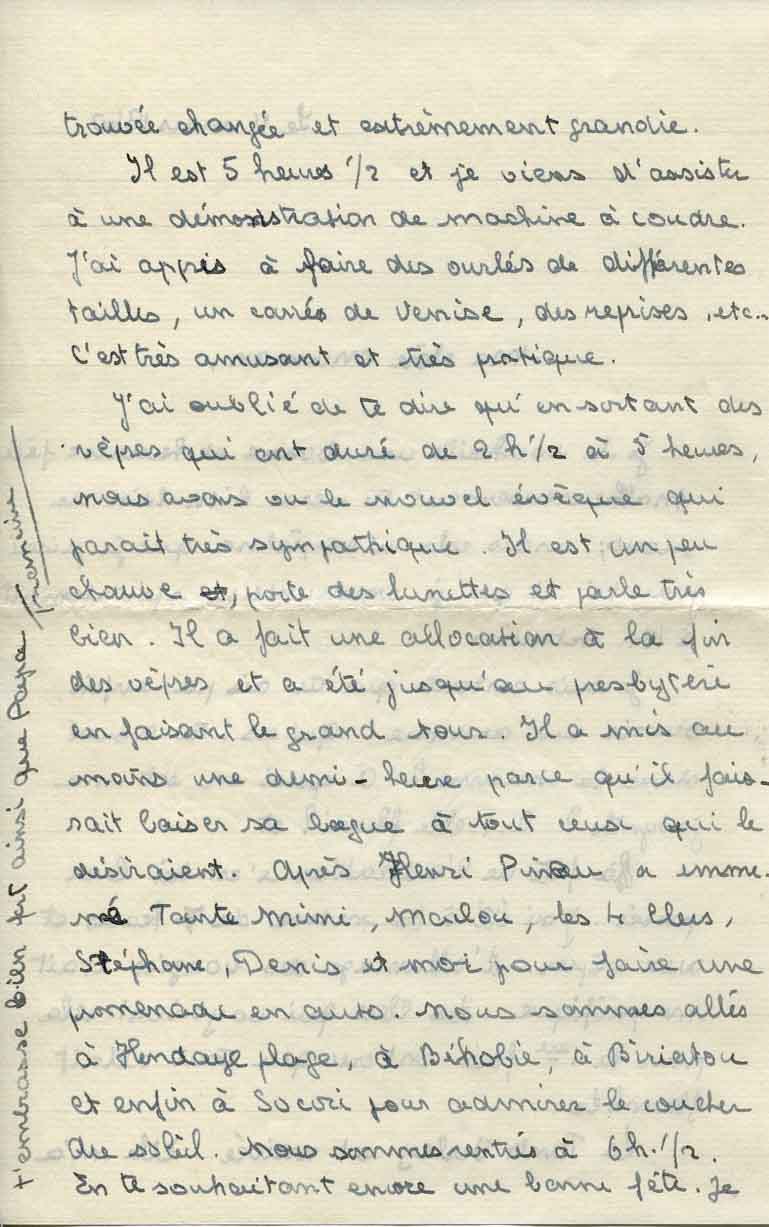 trouvée changée et extrêmement grandie.
Il est 5 heures 1/2 et je viens d'assister
à une démonstration de machine à coudre.
J'ai appris à faire des ourlés de différentes
tailles, un carrés de Venise, des reprises, etc..
C'est très amusant et très pratique.
J'ai oublié de te dire qu'en sortant des
vêpres qui ont duré de 2 h 1/2 à 5 heures,
nous avons vu le nouvel évêque qui
parait très sympathique. Il est un peu
chauve et, porte des lunettes et parle très
bien. Il a fait une allocation à la fin
des vêpres et a été jusqu'au presbytère
en faisant le grand tour. Il a mis au
moins une demi-heure parce qu'il fai-
sait baiser sa bague à tout ceux qui le
désiraient. Après Henri Pinau a emme-
né Tante Mimi, Malou, les 4
Stéphane, Denis et moi pour faire une
promenade en auto. Nous sommes allés
à Hendaye plage, à Béhobie, à Biriatou
et enfin à Socori pour admirer le coucher
du soleil. Nous sommes rentrés à 6 h. 1/2.
En te souhaitant encore une bonne fête. Je
t'embrasse bien fort ainsi que Papa